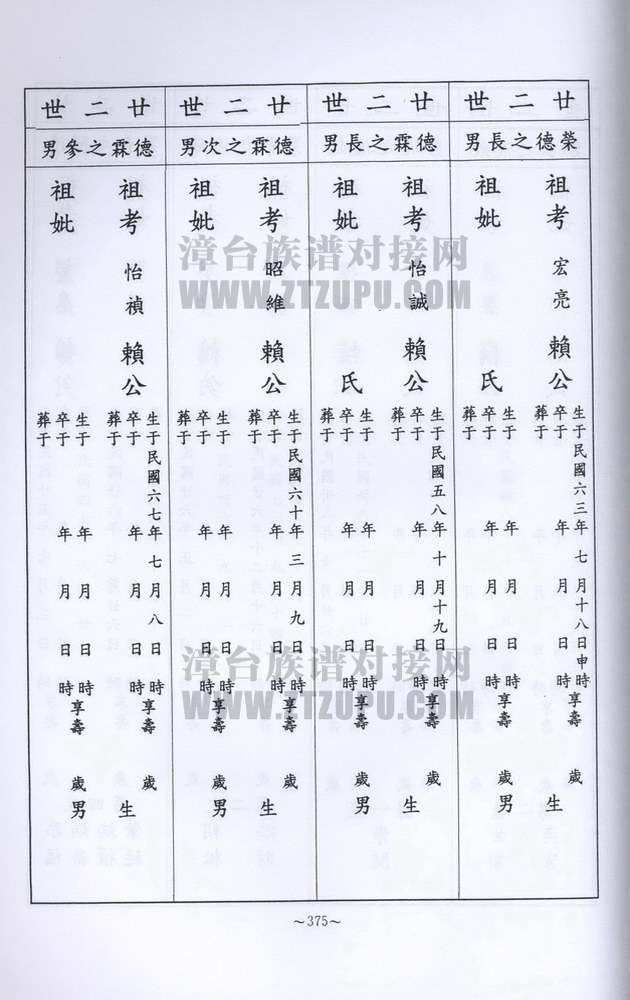 廿二世
榮德之長男
祖考 宏亮 賴公
生于民國六三年七月十八日申時享壽 歲 生
卒于 年 月 日 時
葬于
祖妣 氏
生于 年 月 日 時享壽 歲
卒于 年 月 日 時 男
葬于
廿二世
德霖之長男
祖考 怡誠 賴公
生于民國五八年十月十九日 時享壽 歲 生
卒于 年 月 日 時
葬于
祖妣 氏
生于 年 月 日 時享壽 歲
卒于 年 月 日 時 男
葬于
廿二世
德霖之次男
祖考 昭維 賴公
生于民國六十年三月九日 時享壽 歲 生
卒于 年 月 日 時
葬于
祖妣
生于 年 月 日 時享壽 歲
卒于 年 月 日 時 男
葬于
廿二世
德霖之參男
祖考 怡禎 賴公
生于民國六七年七月八日 時享壽 歲 生
卒于 年 月 日 時
葬于
祖妣
生于 年 月 日 時享壽 歲
卒于 年 月 日 時 男
葬于
漳台族谱对接网
WWW.ZTZUPU.COM
漳台族谱对接网
WWW.ZTZUPU.COM
~375~